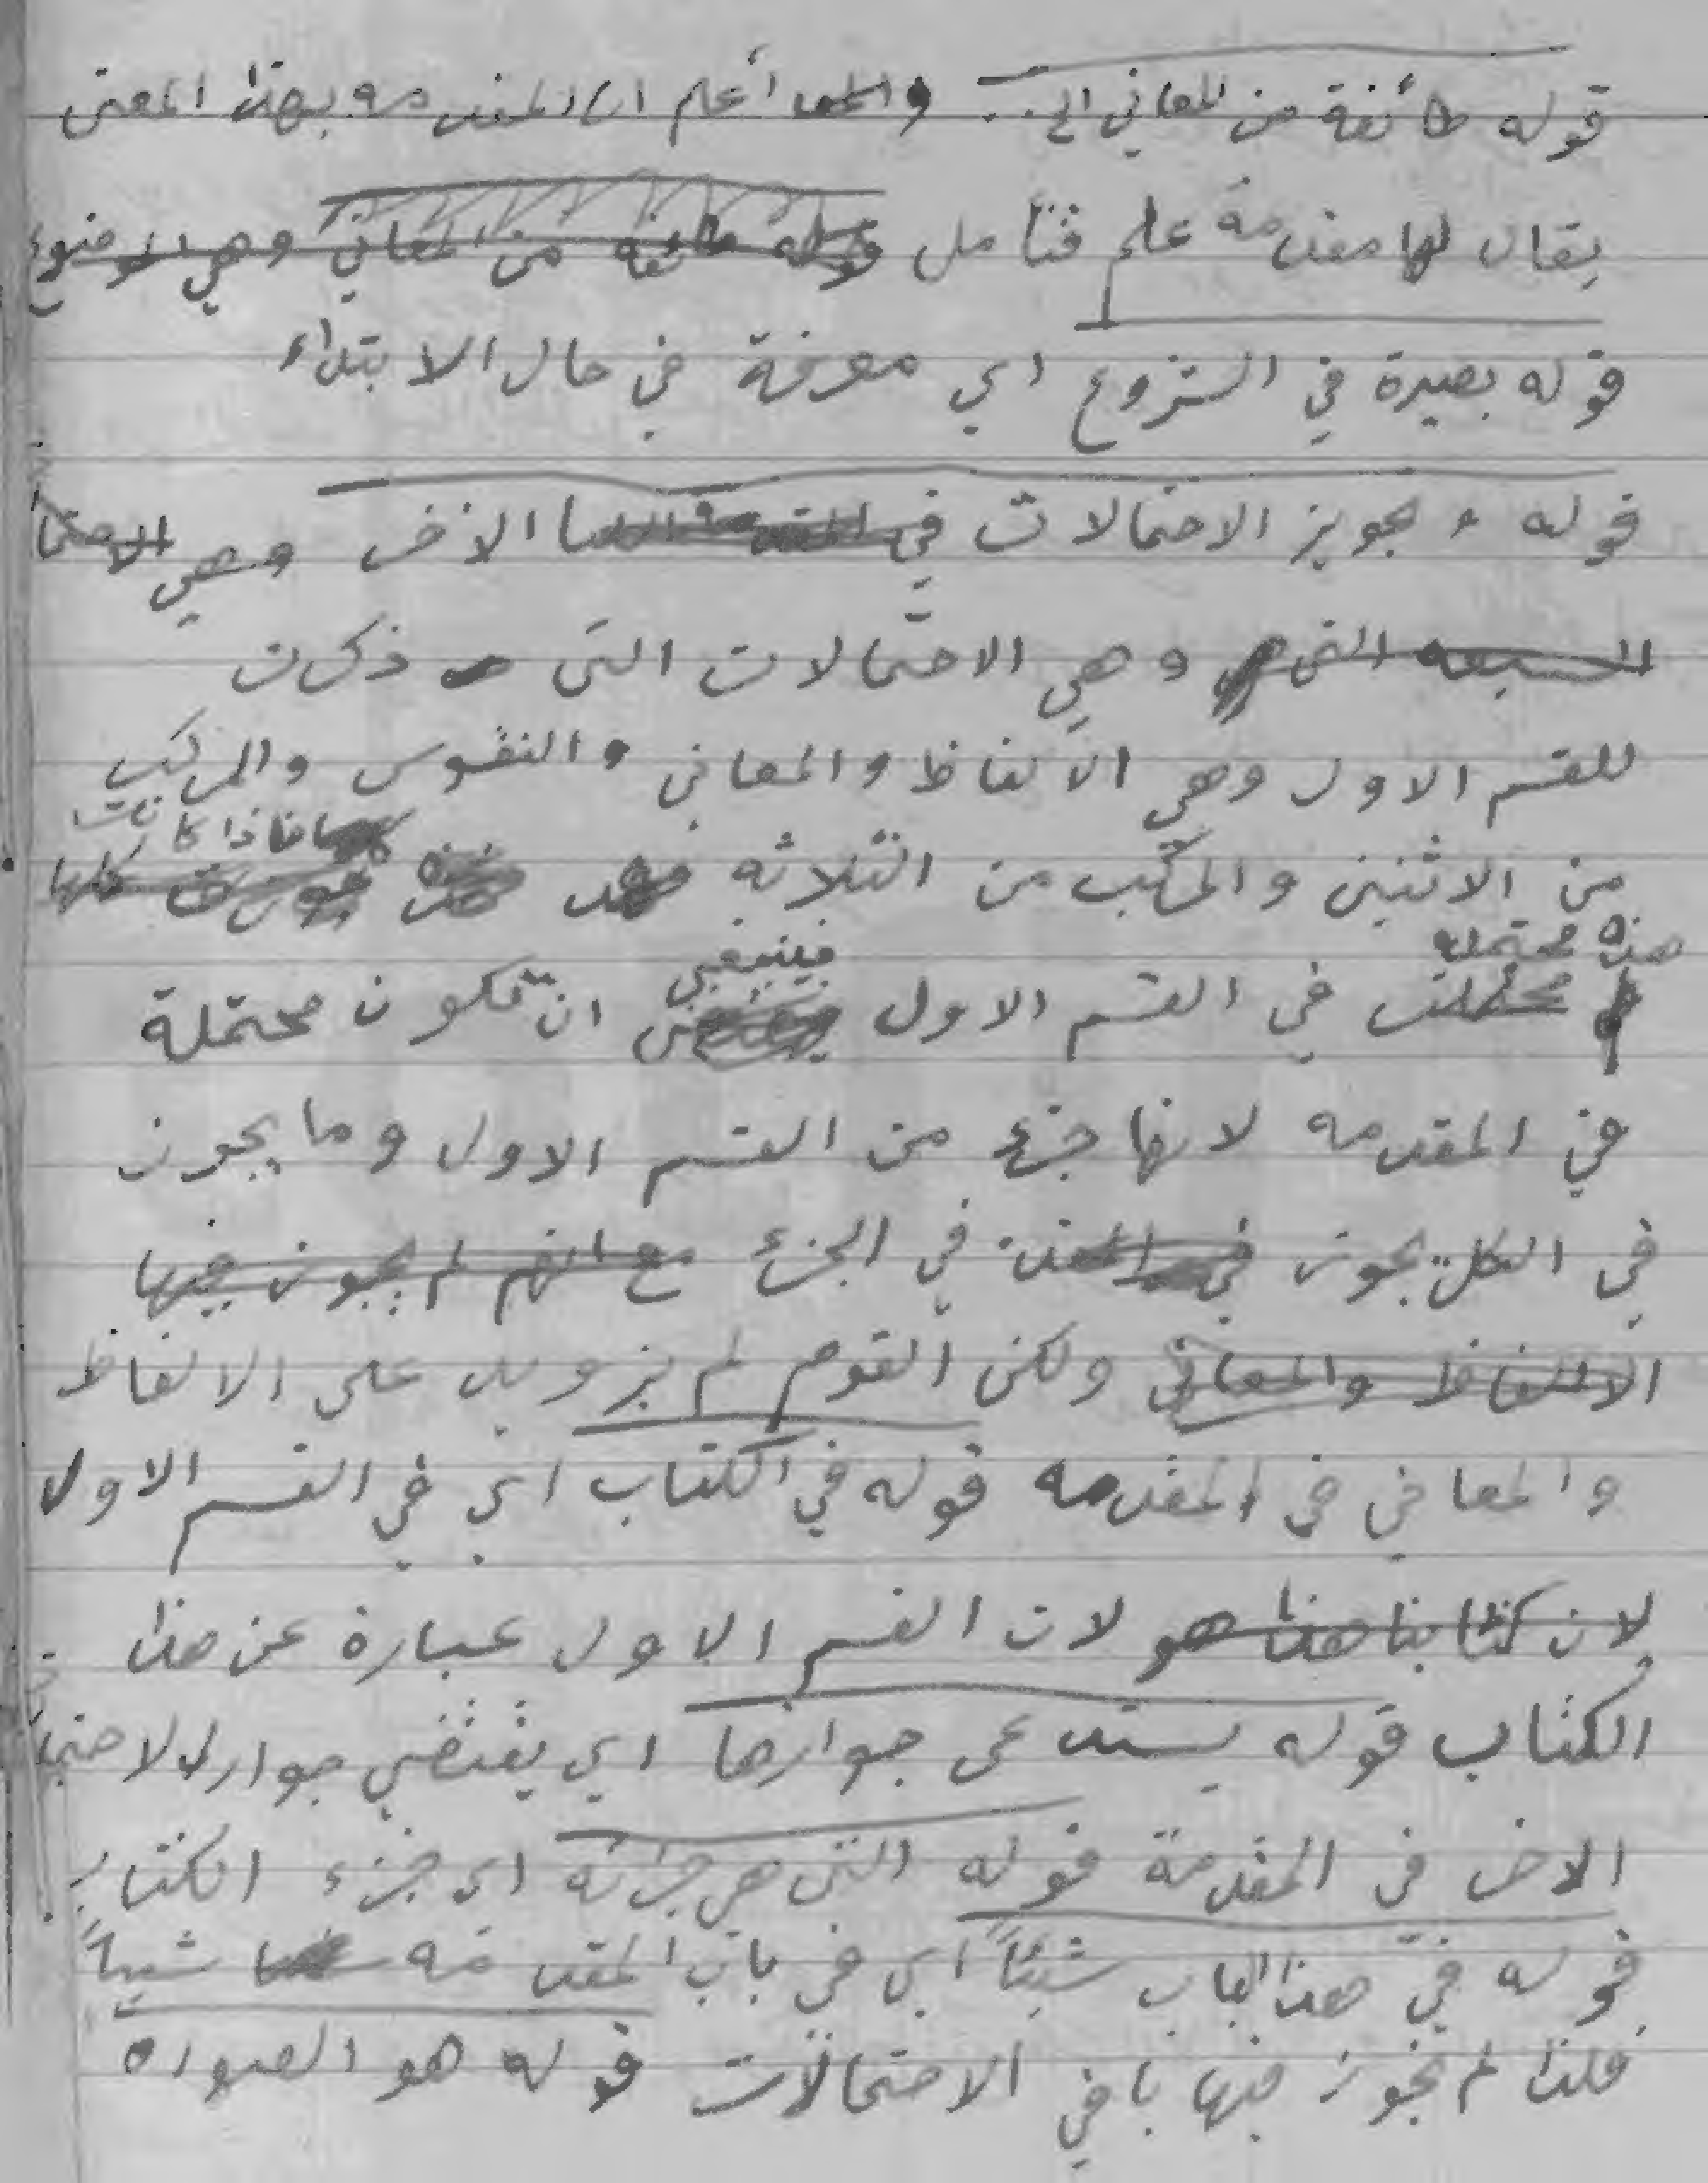 قوله طائفة من المعاني الخ.. واعلم ان المقدمه بهذا المعنى
يقال لها مقدمة علم فتأمل قوله طائفه من المعاني وهي الموضوع
قوله بصيرة في الشروع اي معرفة في حال الابتداء
قوله و يجويز الاحتمالات في المقدمة الاخر وهي الاحتما
السبعه التي وهي الاحتمالات التي ذكرت
للقسم الاول وهي الالفاظ والمعاني والنقوس والمركب
من الاثنين والمركب من الثلاثه جوزت كلها فاذا كانت
هذه محتمله في القسم الاول فينبغي ان تكون محتملة
في المقدمه لانها جزء من القسم الاول وما يجوز
في الكل يجوز في المقد في الجزء مع انهم لم يجوز فيها
الالفاظ والمعاني ولكن القوم لم يزويد على الالفاظ
والمعاني في المقدمه قوله في الكتاب اي في القسم الاول
لان كتابنا هذا هو لان القسم الاول عبارة عن هذا
الكتاب قوله يستدعى جوازها اي يقتضي جواز الاحتما
الاخر في المقدمة قوله التي هي جزئه اى جزء الكتاب
قوله في هذا الباب شيئاً اي في باب المقدمه شيئاً
فلذا لم يجوز فيها باقي الاحتمالات قوله هو الصواه